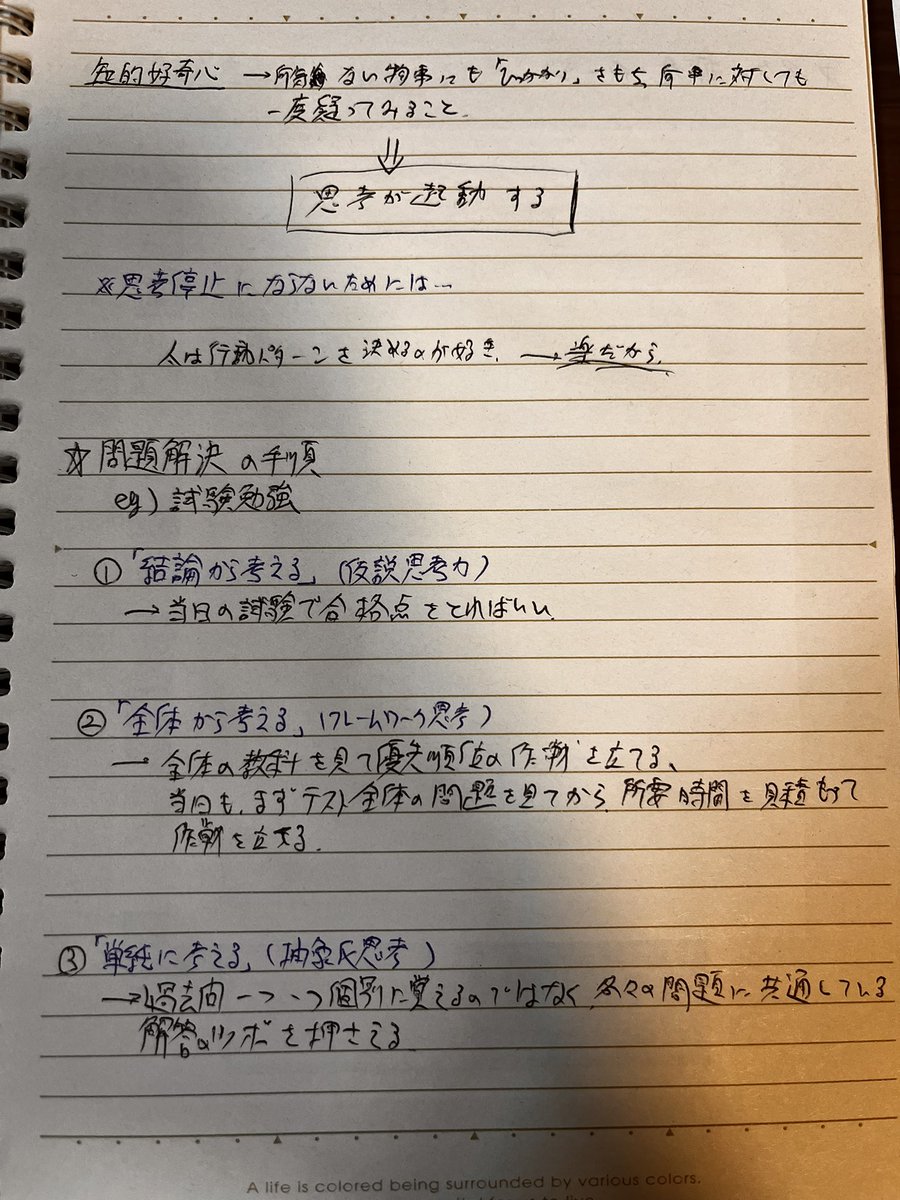 知的好奇心 → ない物事にも「ひっかかり」をもち 何事に対しても
一度疑ってみること。
⇓
思考が起動する
※思考停止にならないためには…
人は行動パターンを決めるのが好き. → 楽だから.
☆問題解決の手順
eg) 試験勉強
①「結論から考える」(仮説思考力)
→ 当日の試験で合格点をとればいい.
②「全体から考える」(フレームワーク思考)
→ 全体の教科を見て優先順位の作戦を立てる、
当日も、まずテスト全体の問題を見てから、所要時間を見積もって
作戦を立てる.
③「単純に考える」(抽象化思考)
→ 過去問一つ一つ個別に覚えるのではなく、各々の問題に共通している
解答のツボを押さえる
A life is colored being surrounded by various colors.